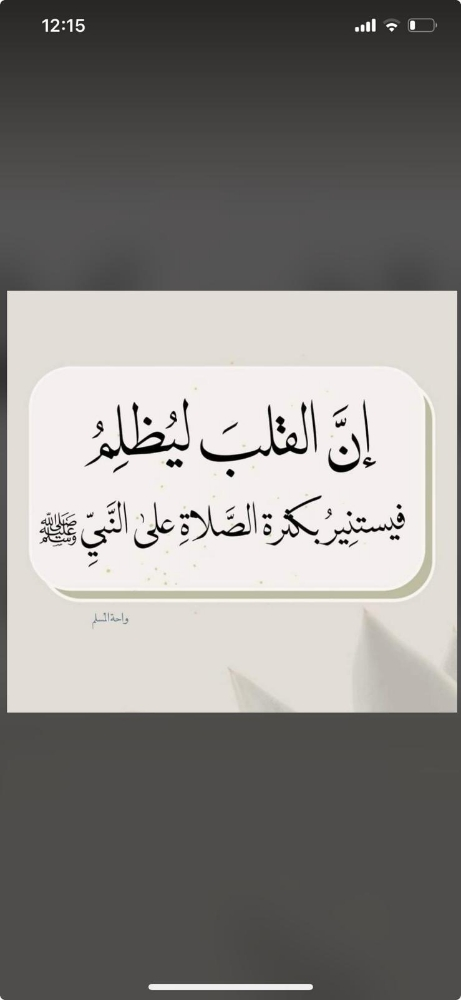 12:15
إنَّ القلبَ ليُظلِمُ
فيستنِيرُ بكثرة الصَّلاةِ على النَّبيِّ ﷺ
واحة المسلم